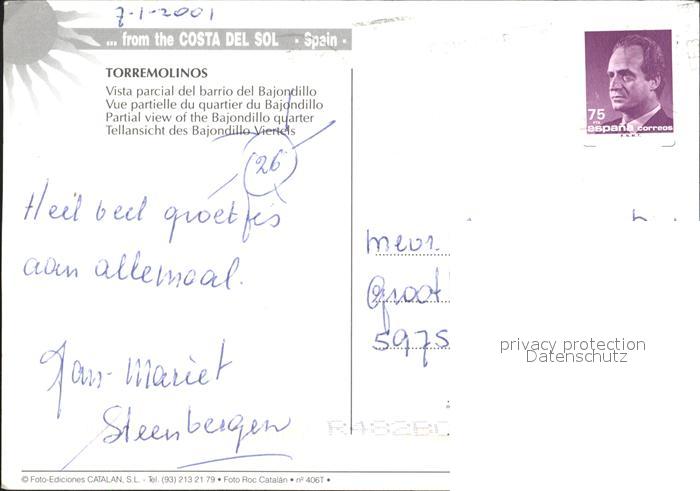 7-1-2001
... from the COSTA DEL SOL • Spain •
TORREMOLINOS
Vista parcial del barrio del Bajondillo
Vue partielle du quartier du Bajondillo
Partial view of the Bajondillo quarter
Tellansicht des Bajondillo Viertels
26
Heel veel groetjes
aan allemaal.
Jan-Mariet
Steenbergen
75
PTA
españa correos
F.N.M.T.
mevr.
Groot
5975
privacy protection
Datenschutz
© Foto-Ediciones CATALAN, S.L. - Tel. (93) 213 21 79 • Foto Roc Catalán • nº 406T •